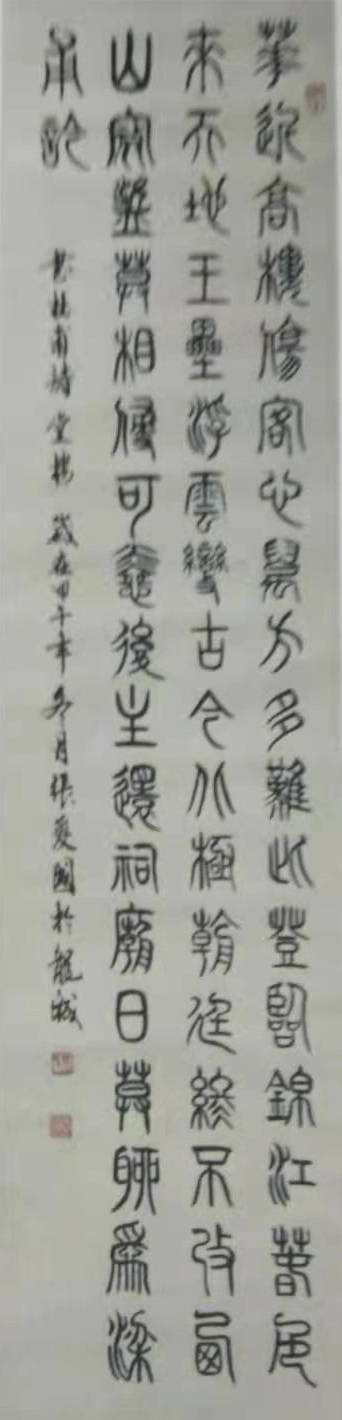 華近高樓傷客心萬方多難此登臨錦江春色
來天地玉壘浮雲變古今北極朝廷終不改西
山寇盜莫相侵可憐後主還祠廟日暮聊爲梁
甫吟
杜甫詩登樓 歲在甲午年冬月張愛國於龍城